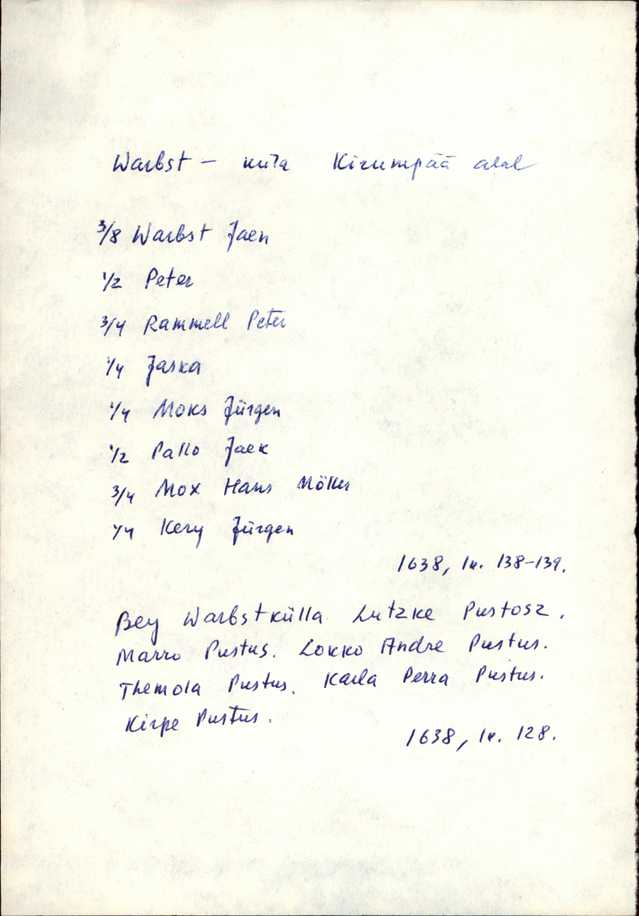 Warbst – küla Kirumpää alal
3/8 Warbst Jaen
1/2 Peter
3/4 Rammell Peter
1/4 Jaska
1/4 Moks Jürgen
1/2 Pallo Jaek
3/4 Mox Hans Möller
1/4 Kery Jürgen
1638, lk. 138-139.
Bey Warbstkülla Lutzke Pustosz.
Marro Pustus. Lokko Andre Pustus.
Themola Pustus. Karla Perra Pustus.
Kirpe Pustus.
1638, lk. 128.